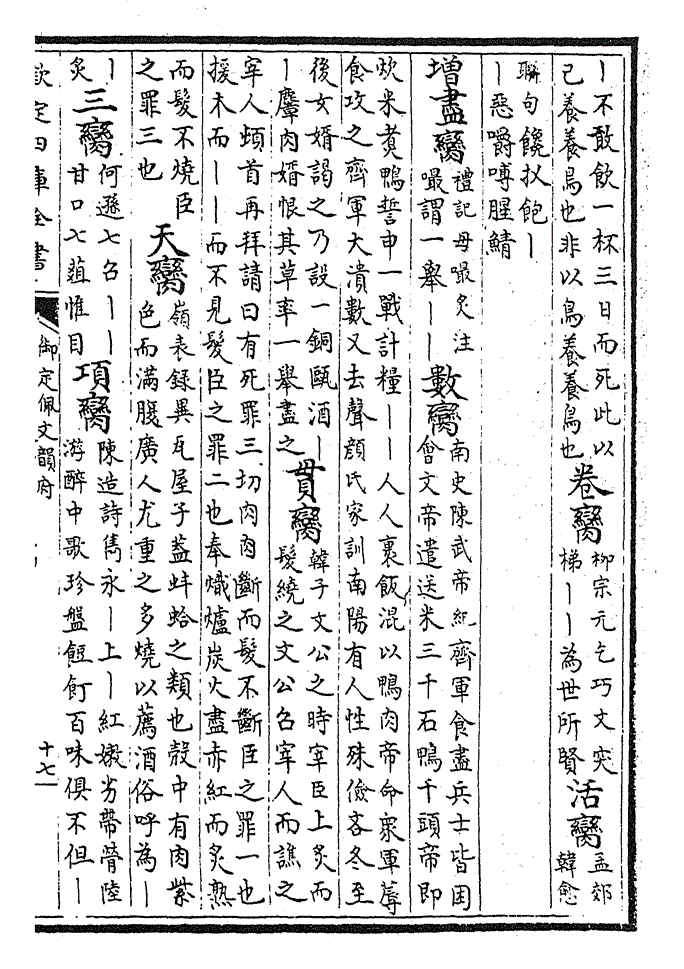 丨不敢飲一杯三日而死此以
己養養鳥也非以鳥養養鳥也
卷臠
柳宗元乞巧文突
梯丨丨為世所賢
活臠
孟郊
韓愈
聯句饞扠飽丨
丨惡嚼嘑腥鯖
增盡臠
禮記毋嘬炙注
嘬謂一舉丨丨
數臠
南史陳武帝紀齊軍食盡兵士皆困
會文帝遣送米三千石鴨千頭帝即
炊米煮鴨誓申一戰計糧丨丨人人裹飯混以鴨肉帝命衆軍蓐
食攻之齊軍大潰數又去聲顔氏家訓南陽有人性殊儉吝冬至
後女婿謁之乃設一銅甌酒丨
丨麞肉婿恨其草率一舉盡之
貫臠
韓子文公之時宰臣上炙而
髮繞之文公召宰人而譙之
宰人頓首再拜請曰有死罪三切肉肉斷而髮不斷臣之罪一也
援木而丨丨而不見髮臣之罪二也奉熾爐炭火盡赤紅而炙熟
而髮不燒臣
之罪三也
天臠
嶺表録異瓦屋子蓋蚌蛤之類也殼中有肉紫
色而滿腹廣人尤重之多燒以薦酒俗呼為丨
丨
炙
三臠
何遜七召丨丨
甘口七葅惟目
項臠
陳造詩雋永丨上丨紅嫩劣帶膋陸
游醉中歌珍盤餖飣百味俱不但丨
欽定四庫全書
御定佩文韻府
十七